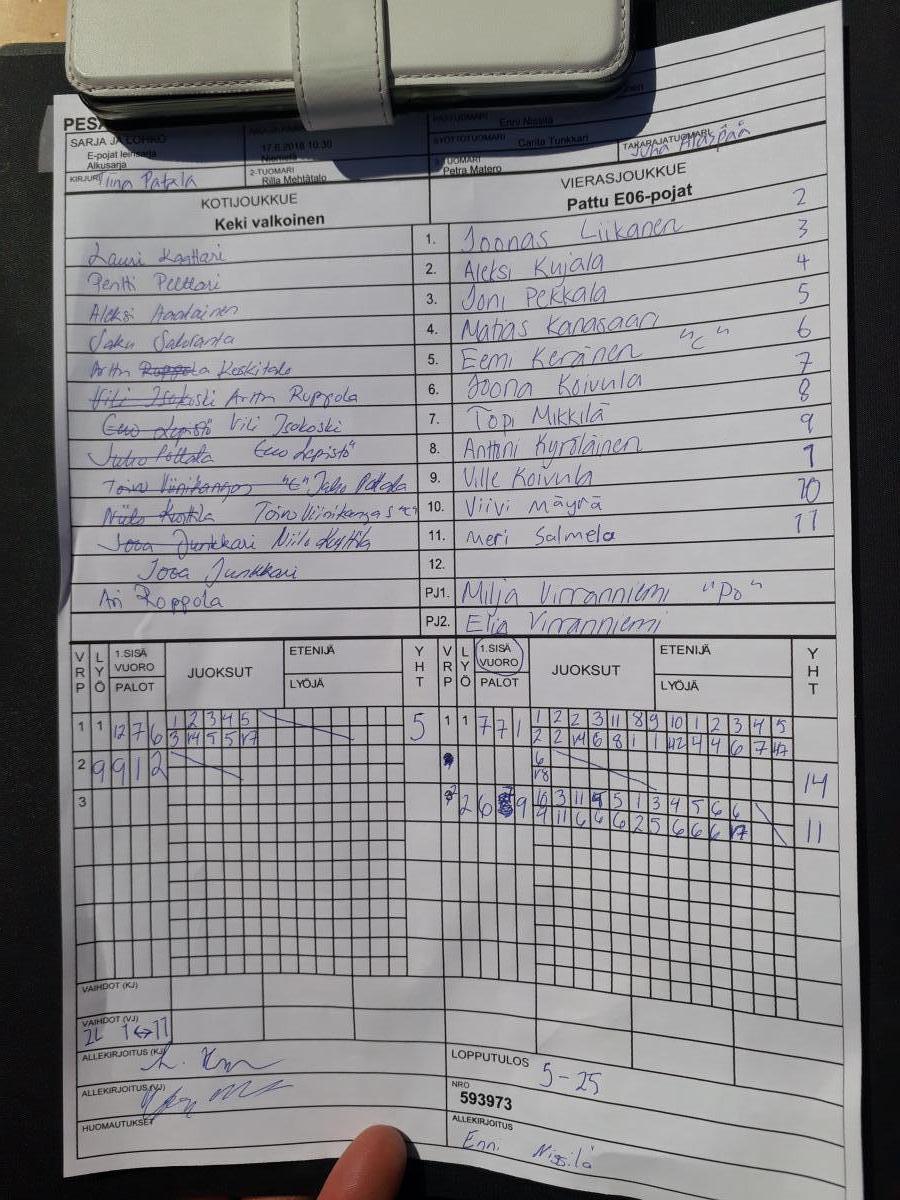 PESÄ
SARJA JA LOHKO
E-pojat leirisarja
Alkusarja
17.6.2018 10:30
Niemelä
Enni Nissilä
SYÖTTÖTUOMARI
Carita Tunkkari
TAKARAJATUOMARI
Juha Alaspää
KIRJURI Tiina Patala
2-TUOMARI
Rilla Mehtätalo
3-TUOMARI
Petra Matero
KOTIJOUKKUE
Keki valkoinen
VIERASJOUKKUE
Pattu E06-pojat
Lauri Kaattari 1. Joonas Liikanen 2
Pentti Peltkari 2. Aleksi Kujala 3
Aleksi Haalainen 3. Joni Pekkala 4
Saku Saloranta 4. Matias Kanasaari 5
Arttu Roppola Keskitalo 5. Eemi Keränen "C" 6
Vili Isokoski Arttu Roppola 6. Joona Koivula 7
Eero Lepistö Vili Isokoski 7. Topi Mikkilä 8
Juho Pottala Eero Lepistö 8. Anttoni Kyröläinen 9
Toivo Viinikangas "C" Juho Pottala 9. Ville Koivula 1
Niilo Korttila Toivo Viinikangas "C" 10. Viivi Mäyrä 10
Jooa Junkkari Niilo Korttila 11. Meri Salmela 11
Jooa Junkkari 12.
Ari Roppola PJ1. Milja Virranniemi "Po"
PJ2. Elia Virranniemi
VRP LYÖ 1.SISÄ VUORO PALOT JUOKSUT ETENIJÄ LYÖJÄ YHT
VRP LYÖ 1.SISÄ VUORO PALOT JUOKSUT ETENIJÄ LYÖJÄ YHT
1 1 12 7 6 1 2 3 4 5 5
3 r4 5 5 r7
1 1 7 7 1 1 2 2 3 11 8 9 10 1 2 3 4 5
2 2 r4 6 8 1 1 r12 4 4 6 7 r17
2 9 9 1 2
6 14
r8
3
2 2 6 9 10 3 11 4 5 1 3 4 5 6 6 11
4 11 6 6 6 2 5 6 6 6 r7
VAIHDOT (KJ)
VAIHDOT (VJ)
2L 1↔11
ALLEKIRJOITUS (KJ)
LOPPUTULOS 5-25
ALLEKIRJOITUS (VJ)
NRO
593973
HUOMAUTUKSET
ALLEKIRJOITUS
Enni Nissilä